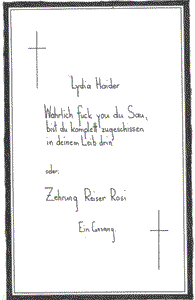 Lydia Haider
Wahrlich fuck you du Sau,
bist du komplett zugeschissen
in deinem Leib drin
oder:
Zehrung Reiser Rosi
Ein Gesang